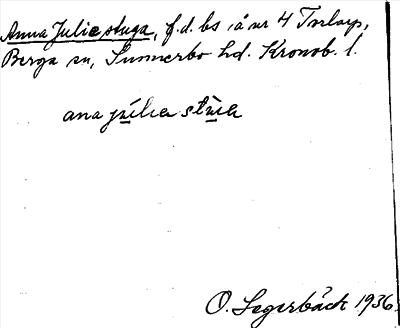 Anna Julie stuga, f.d. bs å nr 4 Torlarp,
Berga sn, Sunnerbo hd. Kronob. l.
ana júlıa stùa
O. Segerbäck 1936.